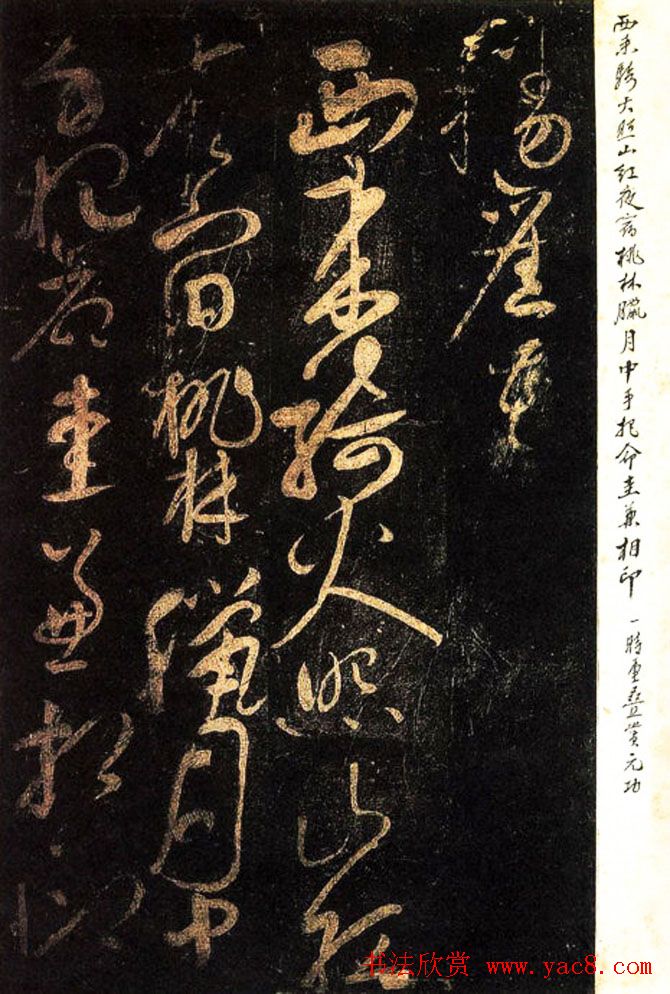 西来騎火照山红夜宿桃林臘月中手把命圭兼相印 一時重叠賞元功
西来騎火照山红
夜宿桃林臘月中
手把命圭兼相印
书法欣赏 www.yac8.com